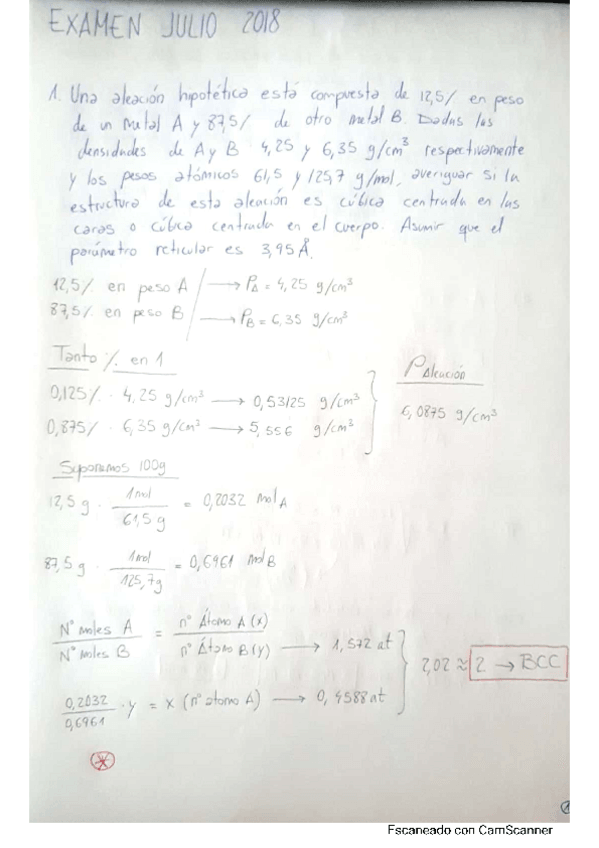 EXAMEN JULIO 2018
1. Una aleación hipotética está compuesta de 12,5% en peso
de un metal A y 87,5% de otro metal B. Dadas las
densidades de A y B 4,25 y 6,35 g/cm³ respectivamente
y los pesos atómicos 61,5 y 125,7 g/mol, averiguar si la
estructura de esta aleación es cúbica centrada en las
caras o cúbica centrada en el cuerpo. Asumir que el
parámetro reticular es 3,95 Å.
12,5% en peso A → ρA = 4,25 g/cm³
87,5% en peso B → ρB = 6,35 g/cm³
Tanto % en 1
0,125% · 4,25 g/cm³ → 0,53125 g/cm³
0,875% · 6,35 g/cm³ → 5,556 g/cm³
ρ Aleación
6,0875 g/cm³
Suponemos 100g
12,5 g · 1mol / 61,5 g = 0,2032 mol A
87,5 g · 1mol / 125,7g = 0,6961 mol B
Nº moles A / Nº moles B = nº Átomo A (x) / nº Átomo B (y) → 1,572 at
0,2032 / 0,6961 · y = x (nº atomo A) → 0,4588 at
2,02 ≈ 2 → BCC
*
1
Escaneado con CamScanner